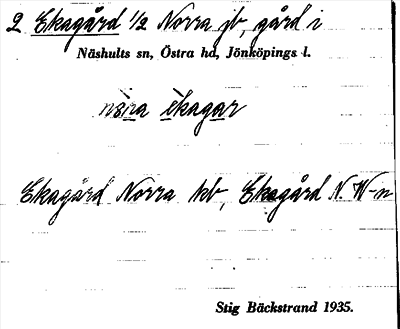 2 Ekagård 1/2 Norra jb, gård i
Näshults sn, Östra hd, Jönköpings l.
ekagar
Ekagård Norra kb, Ekagård N. W-n
Stig Bäckstrand 1935.